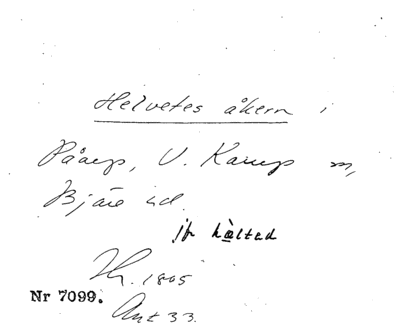 Helvetes åkern i
Påarp, V. Karup sn,
Bjäre hd.
jfr hältad
1805
Nr 7099.
Ant 33.